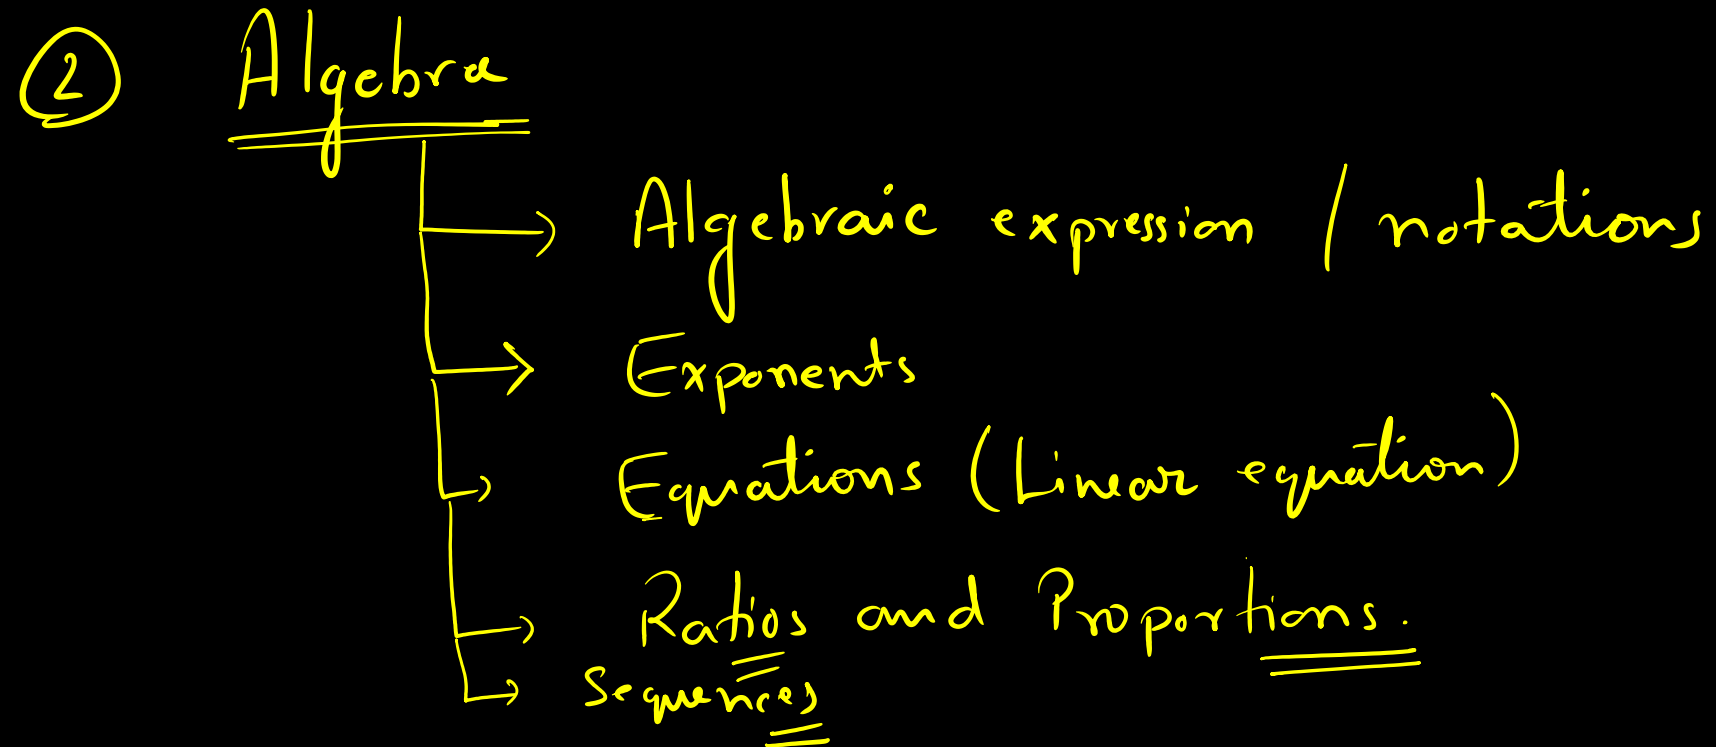 2 Algebra
Algebraic expression / notations
Exponents
Equations (Linear equation)
Ratios and Proportions.
Sequences